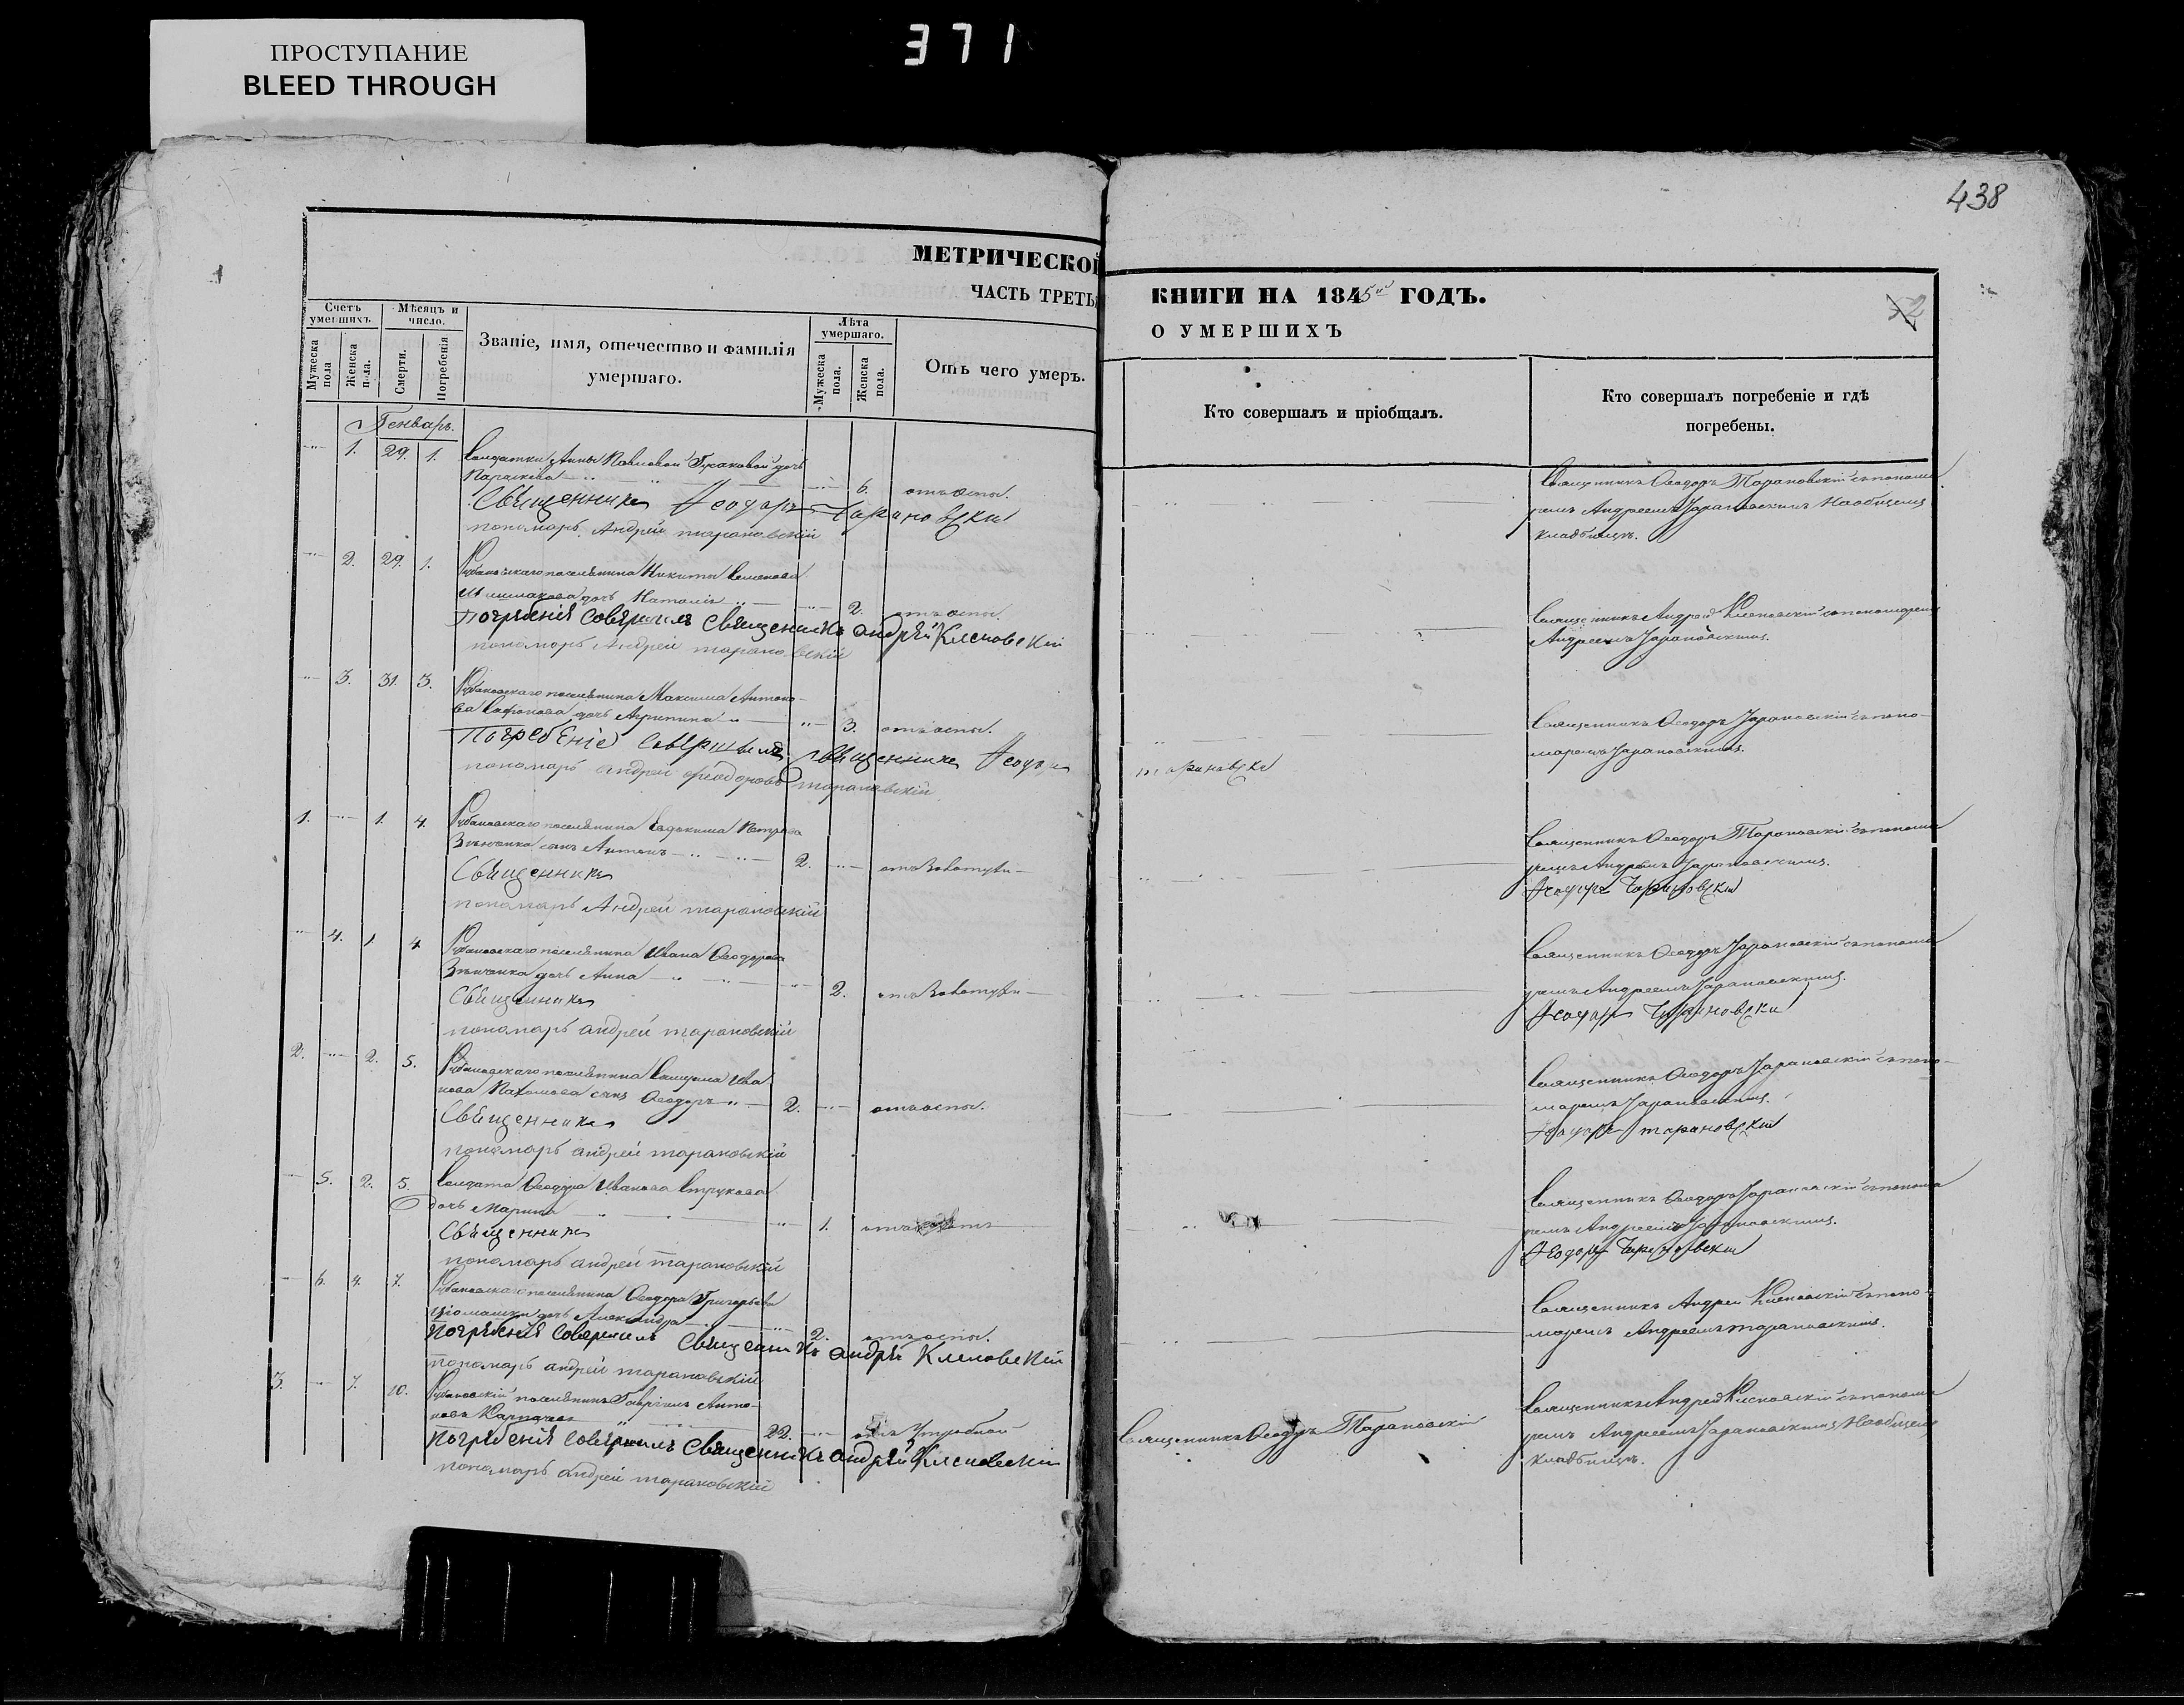 ПРОСТУПАНИЕ
BLEED THROUGH
371
438
МЕТРИЧЕСКОЙ
ЧАСТЬ ТРЕТЬ
Счетъ умершихъ.
Мужеска пола
Женска пола.
Мѣсяцъ и число.
Смерти.
Погребенія
Званіе, имя, отечество и фамилія
умершаго.
Лѣта умершаго.
Мужеска пола.
Женска пола.
Отъ чего умеръ.
КНИГИ НА 1845 ГОДЪ.
О УМЕРШИХЪ
52
Кто совершалъ и пріобщалъ.
Кто совершалъ погребеніе и гдѣ
погребены.
Генварь.
1. 29. 1. Солдатки Анны Павловой дочь
Параскева 6. отъ оспы.
Священникъ Ѳеодоръ Тарановски
пономарь Андрей тарановскій
Священникъ Ѳеодоръ Тарановскій съ понома
ремъ Андреемъ Тарановскимъ На общемъ
кладбищѣ.
2. 29. 1. поселянина Никиты Семенова
дочь Наталія 2. отъ оспы.
Погребенія совершилъ Священникъ андрѣй Клеповский
пономарь Андрей тарановскій
Священникъ Андрей съ пономаремъ
Андреемъ Тарановскимъ.
3. 31. 3. поселянина Максима Антоно-
ва Сафонова дочь Агрипина 3. отъ оспы.
Погребеніе совершилъ священникъ Ѳеодоръ
тарановски
пономарь андрей феодоровъ тарановскій
Священникъ Ѳеодоръ Тарановскій съ поно-
маремъ Тарановскимъ.
1. 1. 4. поселянина Евдокима Петрова
сынъ Антонъ 2.
Священникъ
пономарь Андрей тарановскій
Священникъ Ѳеодоръ Тарановскій съ понома
ремъ Андреемъ Тарановскимъ.
Ѳеодоръ Тарановски
4. 1. 4. поселянина Ивана Ѳеодорова
дочь Анна 2.
Священникъ
пономарь андрей тарановскій
Священникъ Ѳеодоръ Тарановскій съ понома
ремъ Андреемъ Тарановскимъ.
Ѳеодоръ Тарановски
2. 2. 5. поселянина Ива
нова Пахомова сынъ Ѳеодоръ 2. отъ оспы.
Священникъ
пономарь андрей тарановскій
Священникъ Ѳеодоръ Тарановскій съ поно-
маремъ Тарановскимъ.
Ѳеодоръ тарановский
5. 2. 5. Солдата Ѳеодора Иванова Струкова
дочь Марина 1.
Священникъ
пономарь андрей тарановскій
Священникъ Ѳеодоръ Тарановскій съ понома
ремъ Андреемъ Тарановскимъ.
Ѳеодоръ Тарановски
6. 4. 7. поселянина Ѳеодора Григорьева
дочь Александра 2. отъ оспы.
Погребенія совершилъ Священникъ андрѣй Клеповский
пономарь андрей тарановскій
Священникъ Андрей съ поно-
маремъ Андреемъ тарановскимъ.
3. 7. 10. поселянинъ Гавріилъ Анто-
новъ 22.
Погребенія совершилъ Священникъ андрѣй Клеповский
пономарь андрей тарановскій
Священникъ Ѳеодоръ Тарановскій
Священникъ Андрей съ понома
ремъ Андреемъ Тарановскимъ На общемъ
кладбищѣ.